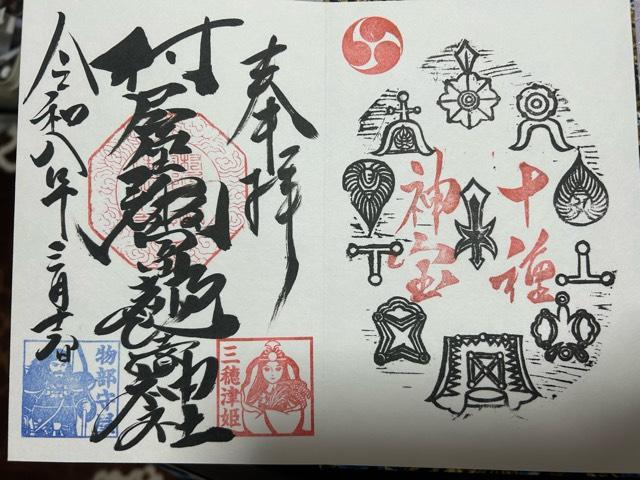 十種
神宝
奉拝
村屋坐彌冨都比賣神社
三穂津姫
令和八年三月
物部守屋